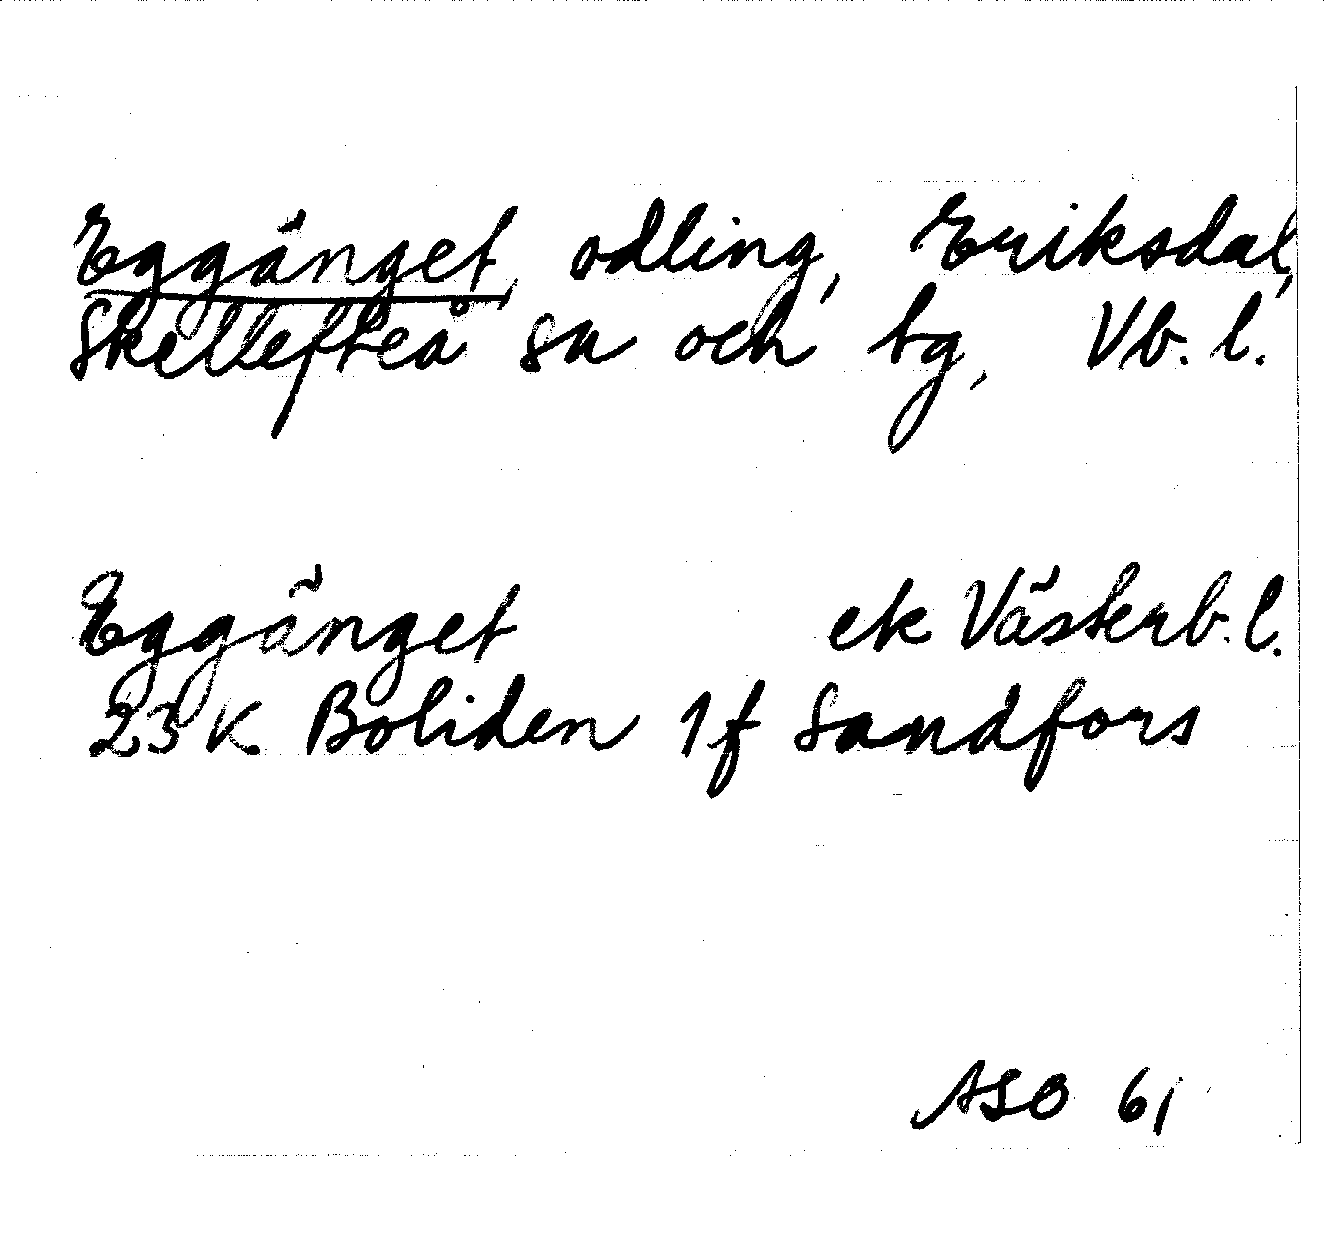 Eggänget, odling, Eriksdal,
Skellefteå sn och tg, Vb. l.
Eggänget ek Västerb. l.
23 K Boliden 1f Sandfors
ASO 61